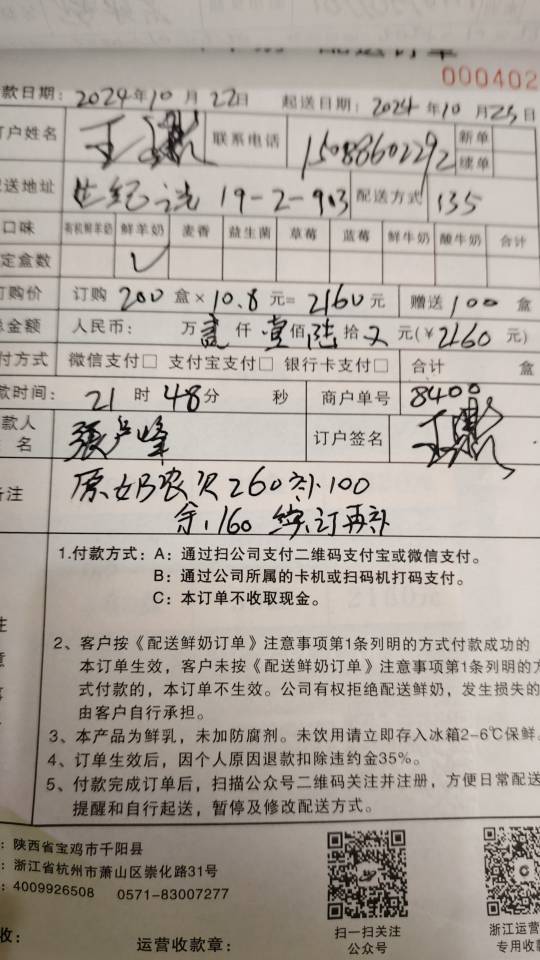 配送订单
000402
款日期：2024年10月22日 起送日期：2024年10月25日
订户姓名 王 联系电话 15088602292 新单
续单
配送地址 世纪 19-2-903 配送方式 135
口味 有机鲜羊奶 鲜羊奶 麦香 益生菌 草莓 蓝莓 鲜牛奶 酸牛奶 合计
定盒数 ✓
订购价 订购 200 盒×10.8元=2160元 赠送100盒
总金额 人民币： 万贰仟壹佰陆拾 元(￥2160元)
付方式 微信支付□ 支付宝支付□ 银行卡支付□ 合计 盒
款时间： 21时48分 秒 商户单号 8400
款人
名 張 峰 订户签名 王
备注 原奶农欠260补100
余:160 续订再补
1.付款方式：A：通过扫公司支付二维码支付宝或微信支付。
B：通过公司所属的卡机或扫码机打码支付。
C：本订单不收取现金。
2、客户按《配送鲜奶订单》注意事项第1条列明的方式付款成功的
本订单生效，客户未按《配送鲜奶订单》注意事项第1条列明的方
式付款的，本订单不生效。公司有权拒绝配送鲜奶，发生损失的
由客户自行承担。
3、本产品为鲜乳，未加防腐剂。未饮用请立即存入冰箱2-6℃保鲜。
4、订单生效后，因个人原因退款扣除违约金35%。
5、付款完成订单后，扫描公众号二维码关注并注册，方便日常配送
提醒和自行起送，暂停及修改配送方式。
：陕西省宝鸡市千阳县
：浙江省杭州市萧山区崇化路31号
：4009926508 0571-83007277
扫一扫关注
公众号
浙江运营
专用收款
收： 运营收款章：